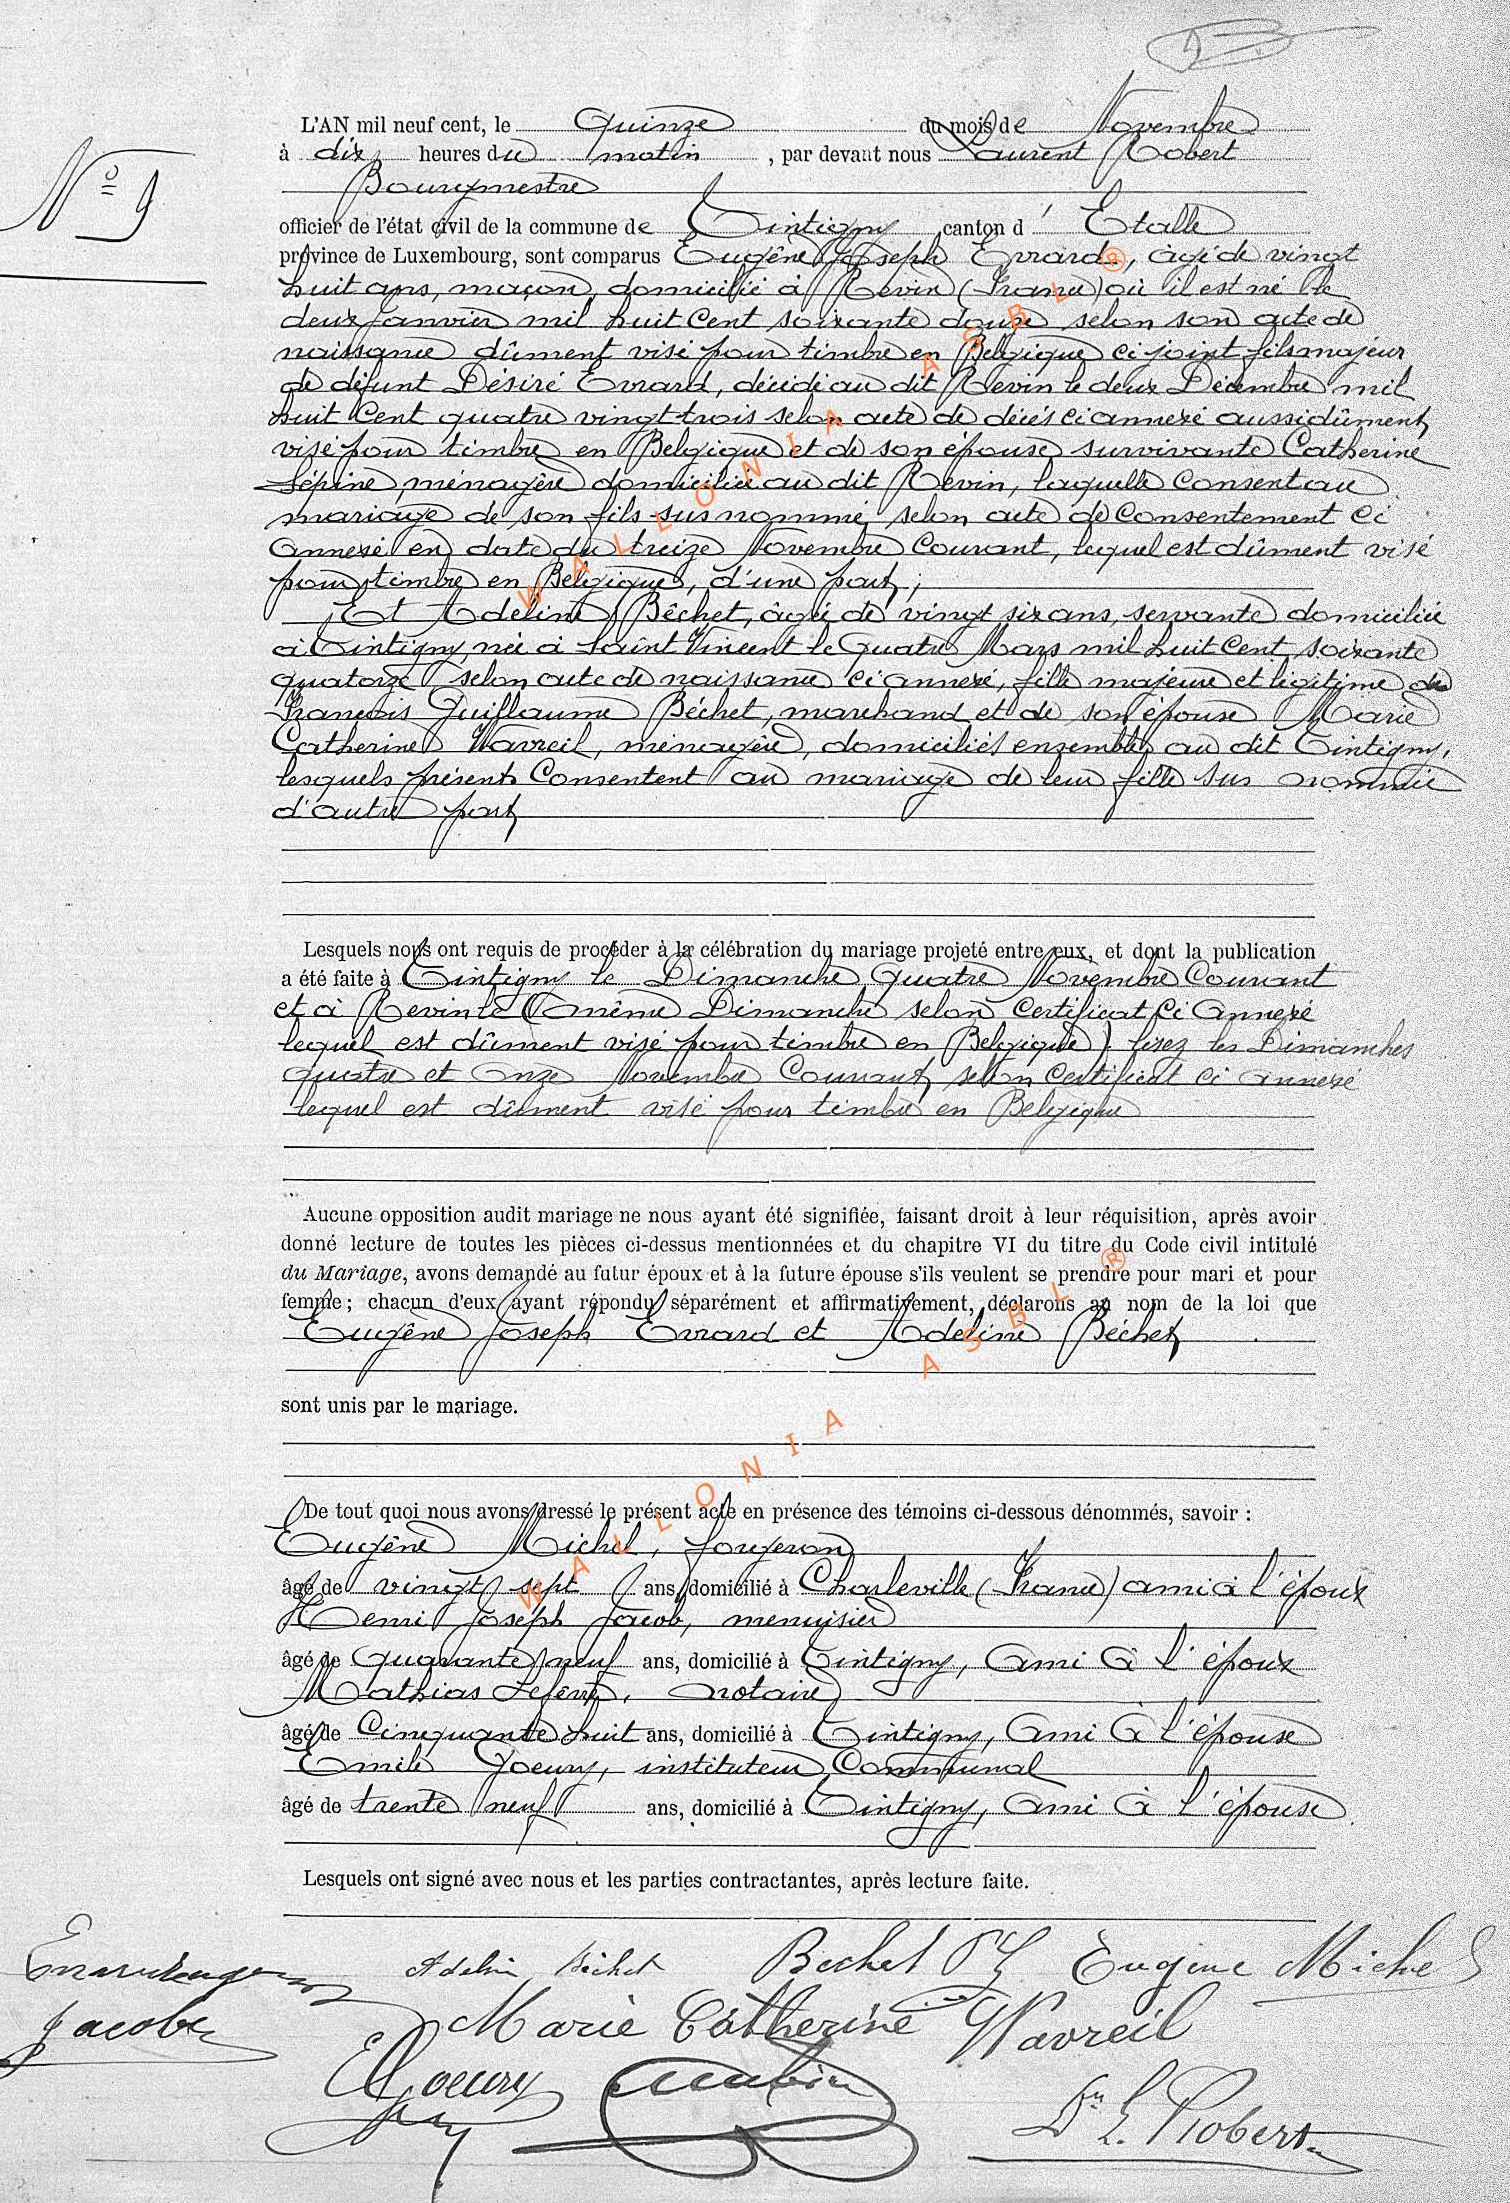 L'AN mil neuf cent, le Quinze du mois de Novembre
à dix heures du matin, par devant nous Laurent Robert
Bourgmestre
N° 9
officier de l'état civil de la commune de Tintigny canton d'Etalle
province de Luxembourg, sont comparus Eugène Joseph Evrard, âgé de vingt
huit ans, maçon, domicilié à Revin (France) où il est né le
deux Janvier mil huit Cent soixante douze selon son acte de
naissance dûment visé pour timbre en Belgique ci joint fils majeur
de défunt Désiré Evrard, décédé au dit Revin le deux Décembre mil
huit Cent quatre vingt trois selon acte de décès ci annexé aussi dûment
visé pour timbre en Belgique et de son épouse survivante Catherine
Lépine, ménagère domiciliée au dit Revin, laquelle Consent au
mariage de son fils sus nommé, selon acte de Consentement Ci
Annexé en date du treize Novembre Courant, lequel est dûment visé
pour timbre en Belgique, d'une part;
Et Adeline Béchet, âgée de vingt six ans, servante domiciliée
à Tintigny, née à Saint Vincent le Quatre Mars mil huit Cent soixante
quatorze selon acte de naissance Ci annexé, fille majeure et légitime de
François Guillaume Béchet, marchand et de son épouse Marie
Catherine Wavreil, ménagère, domiciliés ensemble au dit Tintigny,
lesquels présents Consentent au mariage de leur fille sus nommée
d'autre part
Lesquels nous ont requis de procéder à la célébration du mariage projeté entre eux, et dont la publication
a été faite à Tintigny le Dimanche Quatre Novembre Courant
et à Revin le (même Dimanche selon Certificat Ci Annexé
lequel est dûment visé pour timbre en Belgique) lisez les Dimanches
quatre et Onze Novembre Courant, selon Certificat Ci annexé
lequel est dûment visé pour timbre en Belgique
Aucune opposition audit mariage ne nous ayant été signifiée, faisant droit à leur réquisition, après avoir
donné lecture de toutes les pièces ci-dessus mentionnées et du chapitre VI du titre du Code civil intitulé
du Mariage, avons demandé au futur époux et à la future épouse s'ils veulent se prendre pour mari et pour
femme; chacun d'eux ayant répondu séparément et affirmativement, déclarons au nom de la loi que
Eugène Joseph Evrard et Adeline Béchet
sont unis par le mariage.
De tout quoi nous avons dressé le présent acte en présence des témoins ci-dessous dénommés, savoir :
Eugène Michel, forgeron
âgé de vingt sept ans, domicilié à Charleville (France) ami à l'époux
Henri Joseph Jacob, menuisier
âgé de Quarante neuf ans, domicilié à Tintigny, Ami à l'époux
Mathias Lefèvre, notaire
âgé de Cinquante huit ans, domicilié à Tintigny, Ami à l'épouse
Emile Goeury, instituteur Communal
âgé de trente neuf ans, domicilié à Tintigny, Ami à l'épouse
Lesquels ont signé avec nous et les parties contractantes, après lecture faite.
Adeline Béchet Bechet Eugène Michel
Jacob Marie Catherine Wavreil
EGoeury
Dr L. Robert
WALLONIA ASBL ®
WALLONIA ASBL ®